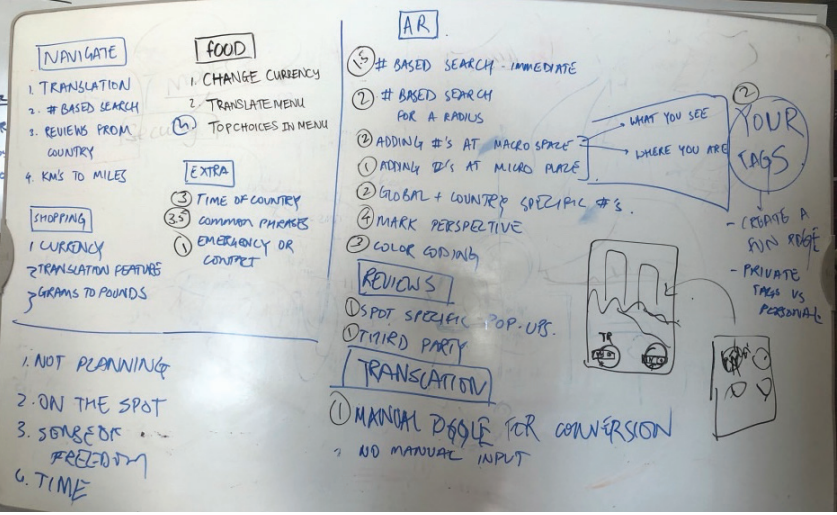 NAVIGATE
1. TRANSLATION
2. # BASED SEARCH
3. REVIEWS FROM
COUNTRY
4. KM'S TO MILES
SHOPPING
1 CURRENCY
2 TRANSLATION FEATURE
3 GRAMS TO POUNDS
FOOD
1. CHANGE CURRENCY
2. TRANSLATE MENU
3 TOP CHOICES IN MENU
EXTRA
3 TIME OF COUNTRY
3.5 COMMON PHRASES
1 EMERGENCY OR
CONTACT
1. NOT PLANNING
2. ON THE SPOT
3. SENSE OF
FREEDOM
4. TIME
AR
1.5 # BASED SEARCH - IMMEDIATE
2 # BASED SEARCH
FOR A RADIUS
2 ADDING #'S AT MACRO SPACE
1 ADDING #'S AT MICRO PLACE
2 GLOBAL + COUNTRY SPECIFIC #'S.
4 MARK PERSPECTIVE
3 COLOR CODING
WHAT YOU SEE
WHERE YOU ARE
2
YOUR
TAGS
- CREATE A
FUN
- PRIVATE
TAGS VS
PERSONAL
REVIEWS
1 SPOT SPECIFIC POP-UPS.
1 THIRD PARTY
TRANSLATION
1 MANUAL TOGGLE FOR CONVERSION
NO MANUAL INPUT
TR